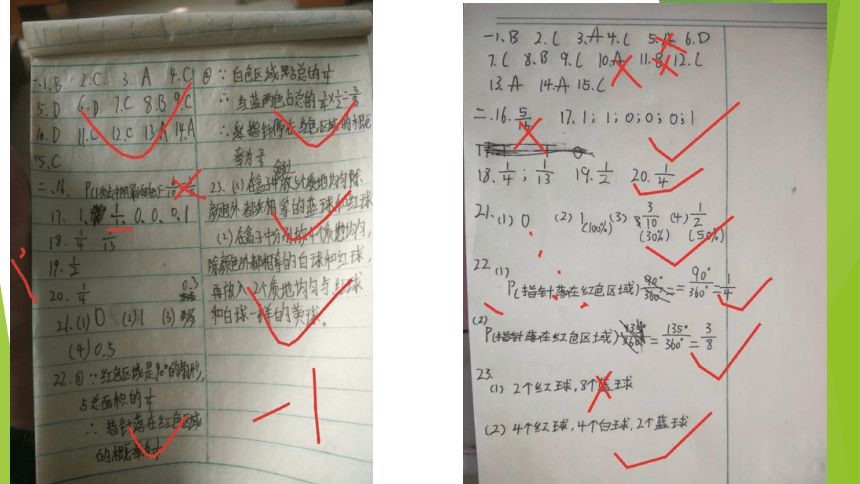 一.1.B 2.C. 3.A 4.C
5.D 6.D 7.C 8.B 9.C
10.D 11.C 12.C 13.A 14.A
15.C
二.16.
17. 1. 0.0.0.1
18. 1/4 1/13
19. 1/2
20. 1/4
21.(1) 0 (2) 1 (3) 0.3
(4) 0.5
22.① ∵红色区域是90°的扇形,
占总面积的1/4
∴指针落在红色区域
的概率
② ∵白色区域占总的1/4
∴红蓝两色占总的
∴指针落在红色区域的概
率为3/8
23.(1)在盒子中放5个质地均匀除
颜色外都相等的蓝球和红球
(2)在盒子中分别放4个质地均匀,
除颜色外都相等的白球和红球,
再放入2个质地均匀与红球
和白球一样的黄球。
-1
一1.B 2.C 3.A 4.C 5. 6.D
7.C 8.B 9.C 10.A 11.B 12.C
13.A 14.A 15.C
二.16. 5/16 17. 1;1;0;0;0;1
18. 1/4; 1/13 19. 1/2 20. 1/4
21.(1) 0 (2) 1(100%) (3) 3/10(30%) (4) 1/2(50%)
22(1)
P(指针落在红色区域)= 90°/360° = 1/4
(2)
P(指针落在红色区域)= 135°/360° = 3/8
23.
(1) 2个红球,8个蓝球
(2) 4个红球,4个白球,2个蓝球